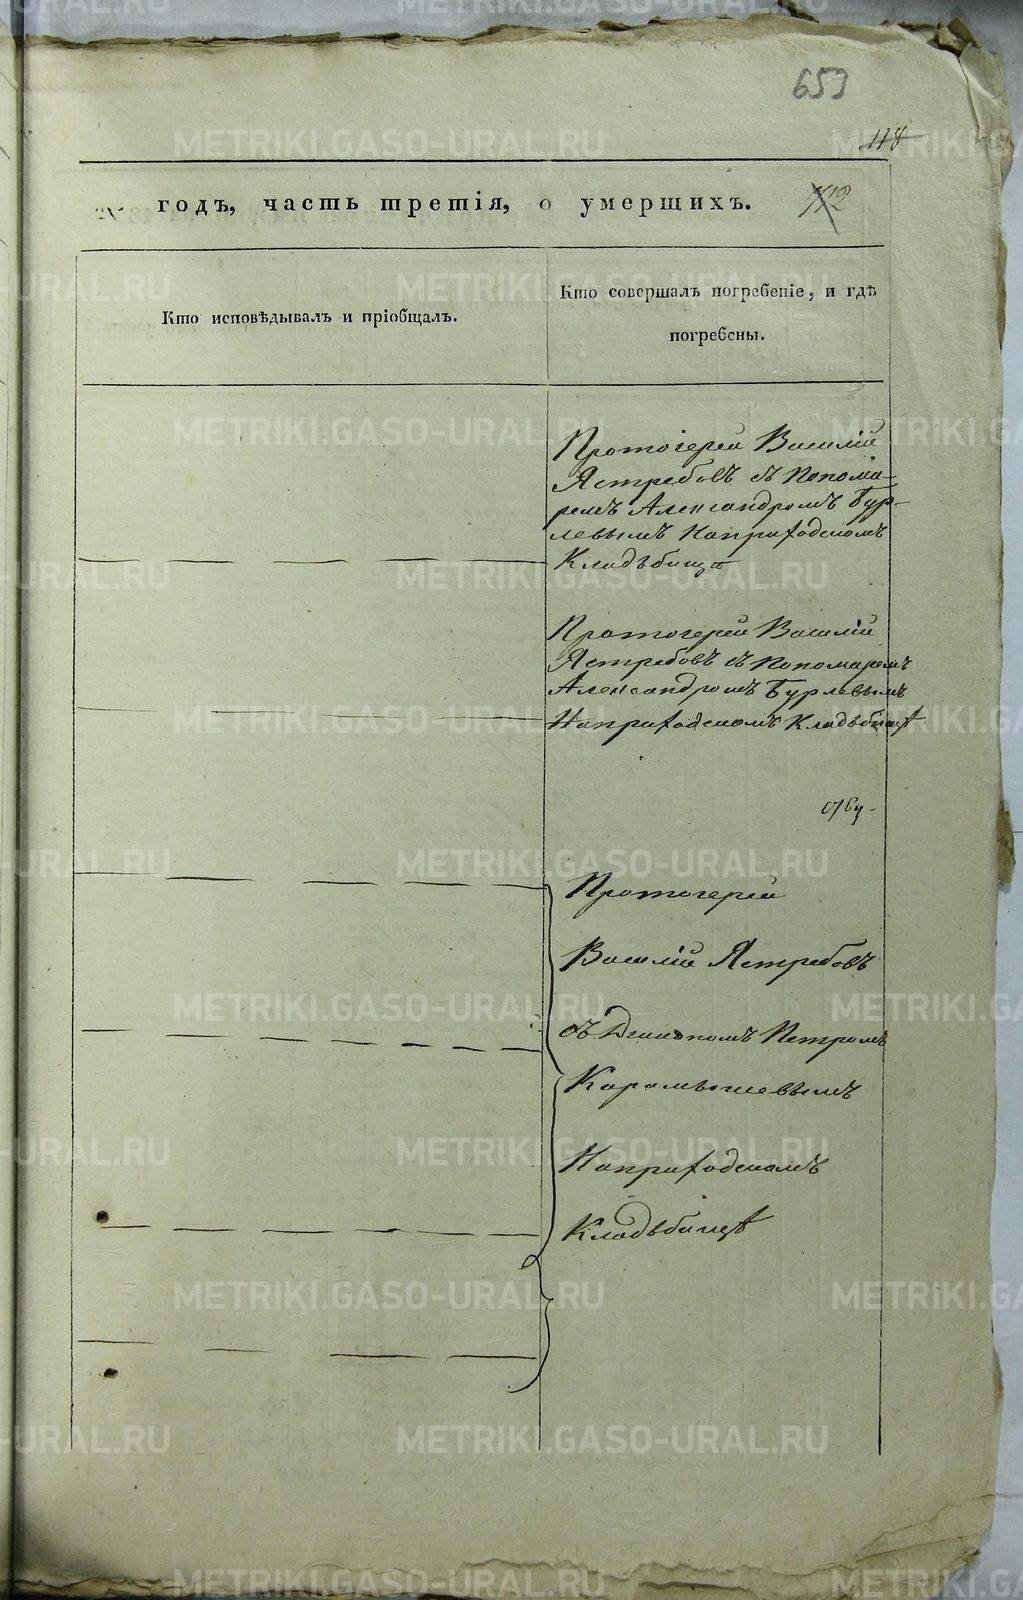 653
118
112
годъ, часть третія, о умершихъ.
Кто исповѣдывалъ и пріобщалъ.
Кто совершалъ погребеніе, и гдѣ
погребены.
Протоіерей Василій
Ястребовъ съ Понома-
ремъ Александромъ Бур-
левымъ Наприходскомъ
Кладѣбище
Протоіерей Василій
Ястребовъ съ Пономаремъ
Александромъ Бурлевымъ
Наприходскомъ Кладѣбищѣ
Протоіерей
Василій Ястребовъ
съ Діакономъ Петромъ
Карамышевымъ
Наприходскомъ
Кладѣбищѣ
METRIKI.GASO-URAL.RU